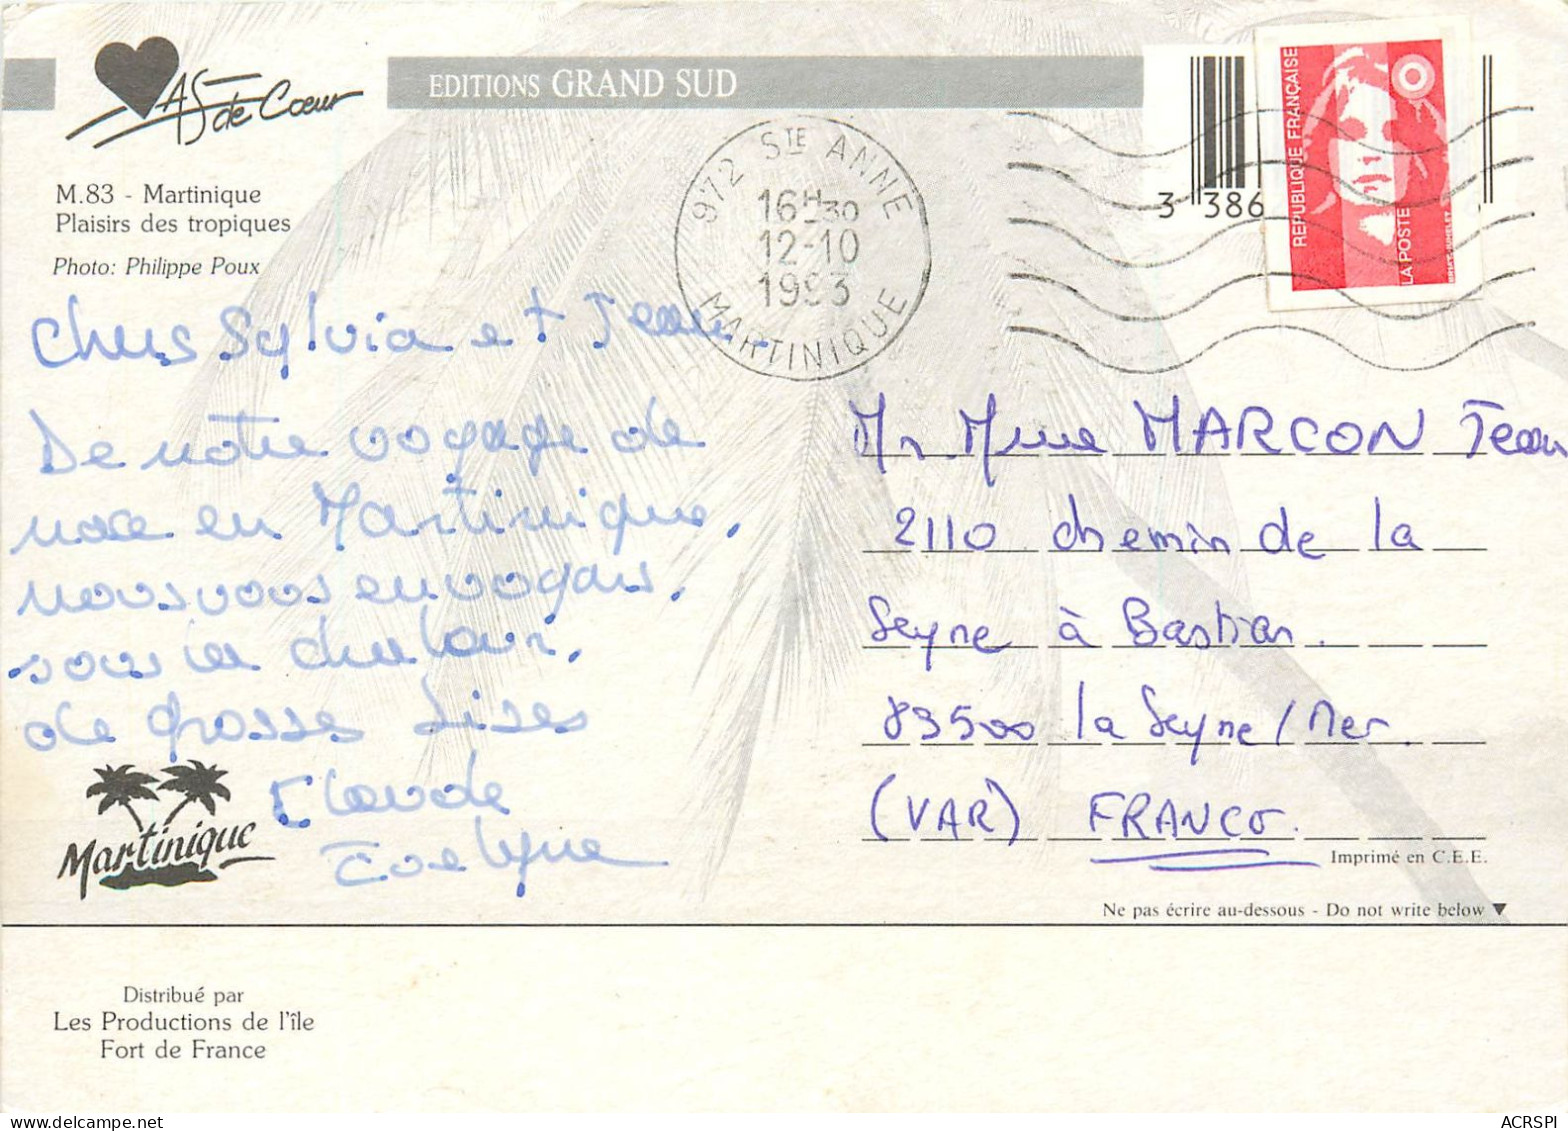 AS de Cœur
EDITIONS GRAND SUD
M.83 - Martinique
Plaisirs des tropiques
Photo: Philippe Poux
972 STE ANNE
16H30
12-10
1993
MARTINIQUE
3 386
REPUBLIQUE FRANÇAISE
LA POSTE
Chers Sylvia et Jean.
De notre voyage de
noce en Martinique,
nous vous envoyons,
sous la chaleur,
de grosses bises
Claude
Evelyne
Mr Mme MARCON Jean
2110 chemin de la
Seyne à Bastian.
83500 la Seyne/Mer.
(VAR) FRANCE.
Martinique
Imprimé en C.E.E.
Ne pas écrire au-dessous - Do not write below ▼
Distribué par
Les Productions de l'île
Fort de France
ACRSPI